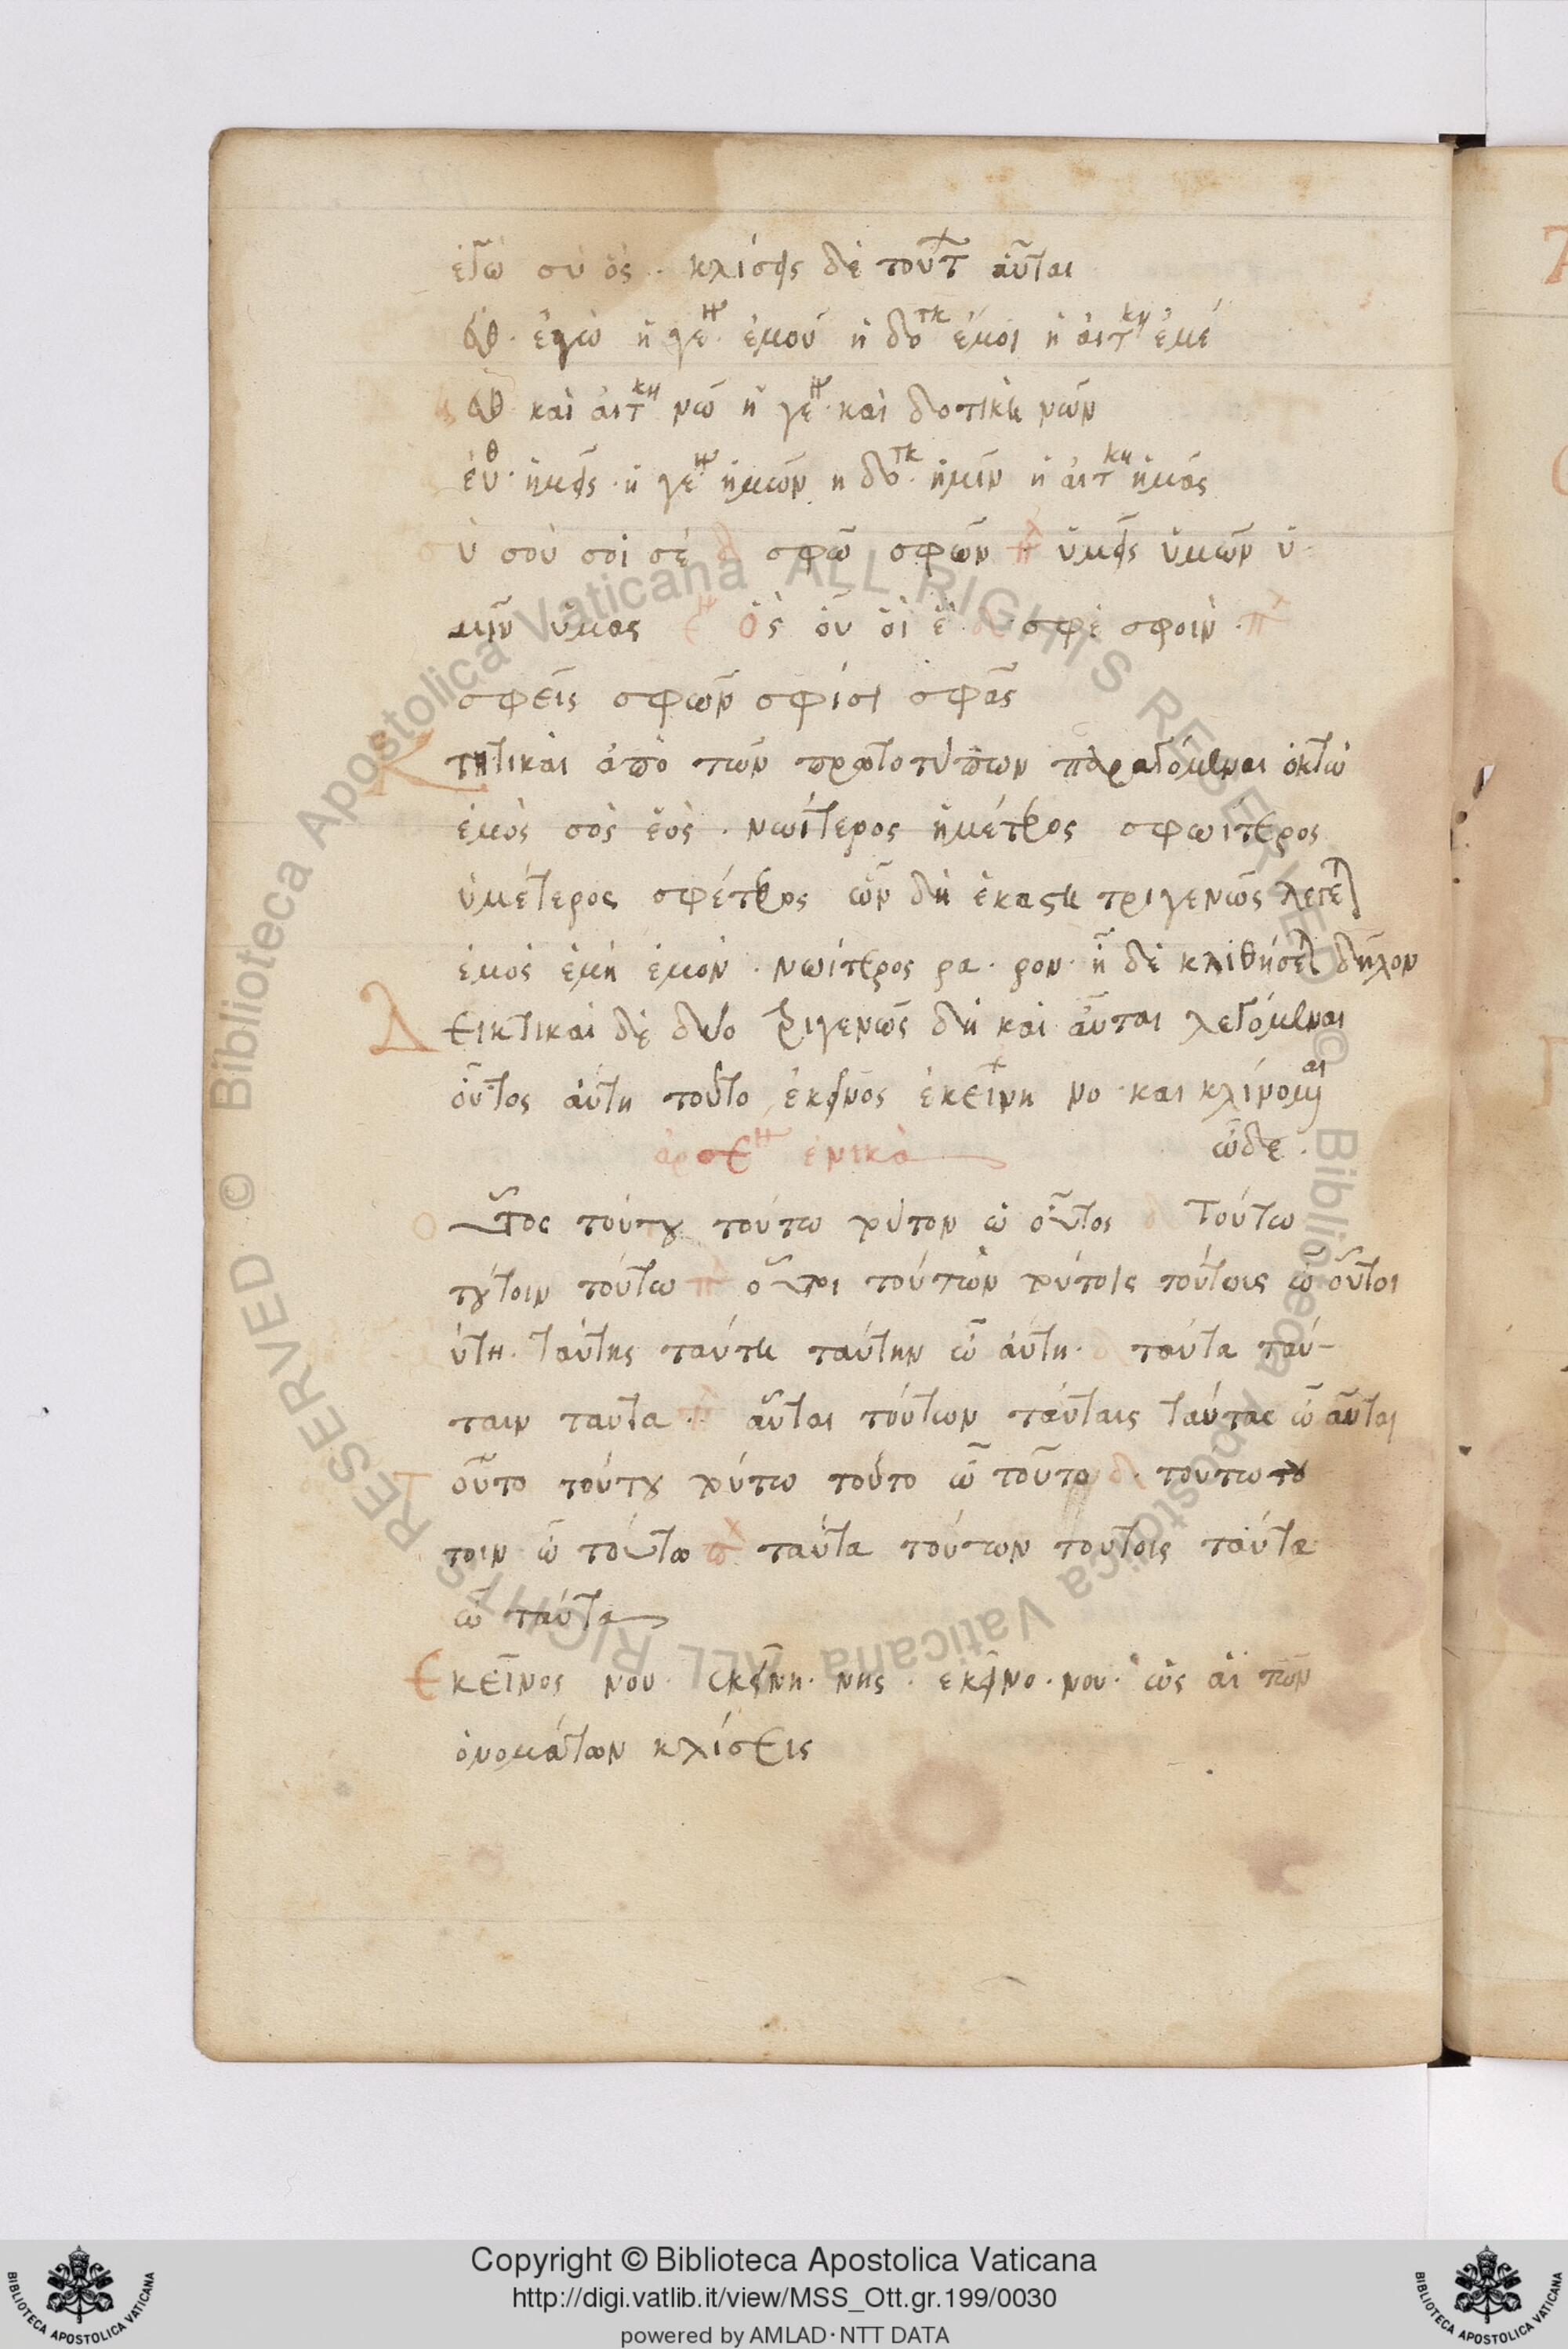 ἐγὼ σὺ ὅς. κλίσεις δὲ τούτ αὗται
εὐθ. ἐγὼ ἡ γε. ἐμοῦ ἡ δο ἐμοὶ ἡ αἰτ ἐμέ
εὐθ καὶ αἰτ νῶ ἡ γε. καὶ δοτικὴ νῶν
εὐθ. ἡμεῖς. ἡ γε ἡμῶν ἡ δο. ἡμῖν ἡ αἰτ ἡμᾶς
σὺ σοῦ σοὶ σὲ δ σφῶ σφῶν π ὑμεῖς ὑμῶν ὑ
μῖν ὑμας ὅς οὗ οἷ ἕ δυ σφὲ σφοιν. π
σφεῖς σφῶν σφίσι σφᾶς
Κτητικαὶ ἀπὸ τῶν πρωτοτύπων παραγόμεναι ὀκτὼ
ἐμὸς σὸς ἑὸς. νωΐτερος ἡμέτερος σφωίτερος
ὑμέτερος σφέτερος ὧν δὴ ἑκάστη τριγενῶς λέγε
ἐμὸς ἐμὴ ἐμὸν. νωίτερος ρα. ρον. ἡ δὲ κλιθήσε δῆλον
Δεικτικαὶ δὲ δύο τριγενῶς δὴ καὶ αὗται λεγόμεναι
οὗτος αὕτη τοῦτο ἐκεῖνος ἐκείνη νο. και κλίνομαι
ὧδε.
ἀρσε ἑνικὰ
Οὗτος τούτου τούτω τοῦτον ὦ οὗτος δ τούτω
τούτοιν τούτω π οὗτοι τούτων τούτοις τούτοις ὦ οὗτοι
αὕτη. ταύτης ταύτη ταύτην ὦ αὕτη. δ ταύτα ταύ-
ταιν ταυτα. π αὗται τούτων ταύταις ταύτας ὦ αὗται
Τοῦτο τούτου τούτω τοῦτο ὦ τοῦτο δ. τουτω του
τοιν ὦ τούτω π ταῦτα τούτων τούτοις ταῦτα
ὦ ταῦτα
Εκεῖνος νου. ἐκείνη. νης. εκεῖνο. νου. ὡς αἱ τῶν
ὀνομάτων κλίσεις
Copyright © Biblioteca Apostolica Vaticana
http://digi.vatlib.it/view/MSS_Ott.gr.199/0030
powered by AMLAD·NTT DATA